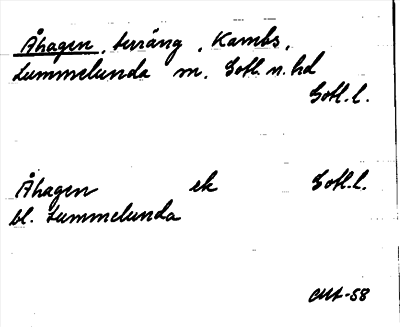 Åhagen, terräng, Kambs,
Lummelunda sn. Gotl. n. hd
Gotl. l.
Åhagen ek Gotl. l.
bl. Lummelunda
-58